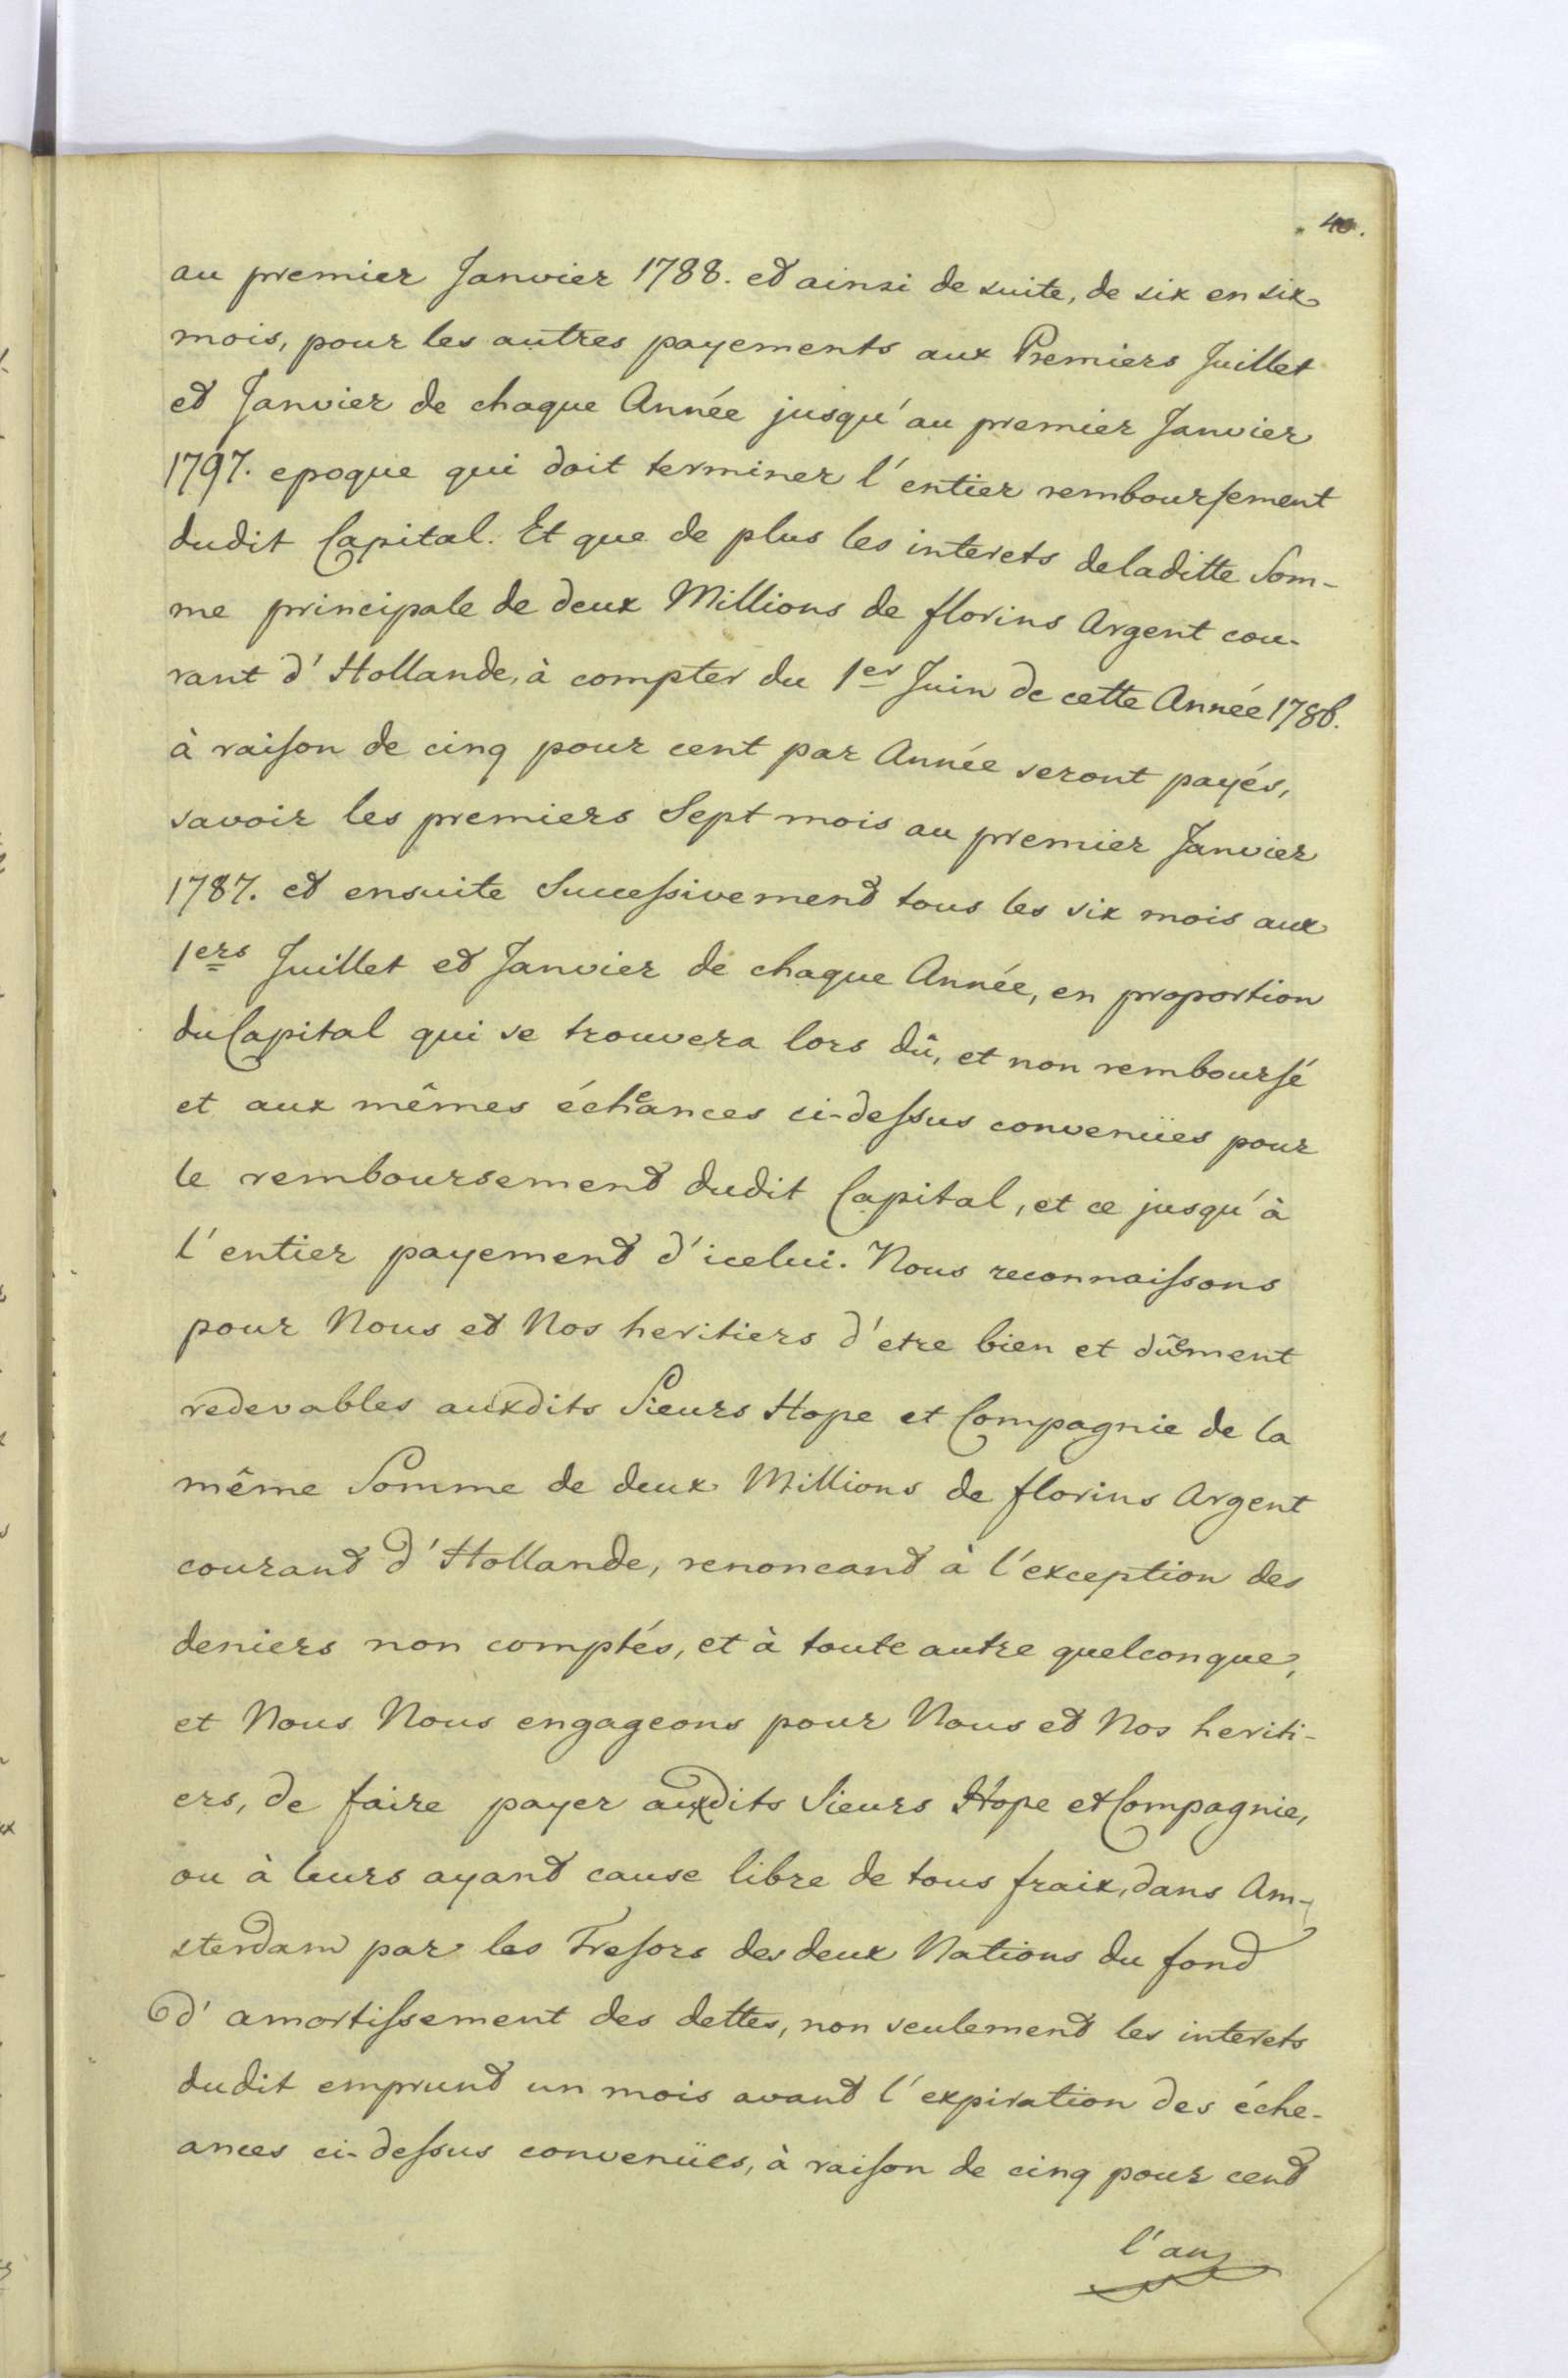 40.
au premier Janvier 1788. et ainsi de suite, de six en six
mois, pour les autres payements aux Premiers Juillet
et Janvier de chaque Année jusqu'au premier Janvier
1797. epoque qui doit terminer l'entier remboursement
dudit Capital. Et que de plus les interets deladitte Som-
me principale de deux Millions de florins Argent cou-
rant d'Hollande, à compter du 1er Juin de cette Année 1786.
à raison de cinq pour cent par Année seront payés,
savoir les premiers Sept mois au premier Janvier
1787. et ensuite Successivement tous les six mois aux
1ers Juillet et Janvier de chaque Année, en proportion
du Capital qui se trouvera lors dû, et non remboursé
et aux mêmes écheances ci-dessus convenües pour
le remboursement dudit Capital, et ce jusqu'à
l'entier payement d'icelui. Nous reconnaissons
pour Nous et Nos heritiers d'etre bien et dûement
redevables auxdits Sieurs Hope et Compagnie de la
même Somme de deux Millions de florins Argent
courant d'Hollande, renoncant à l'exception des
deniers non comptés, et à toute autre quelconque,
et Nous Nous engageons pour Nous et Nos heriti-
ers, de faire payer auxdits Sieurs Hope et Compagnie,
ou à leurs ayant cause libre de tous fraix, dans Am-
sterdam par les Tresors des deux Nations du fond
d'amortissement des dettes, non seulement les interets
dudit emprunt un mois avant l'expiration des éche-
ances ci-dessus convenües, à raison de cinq pour cent
l'an